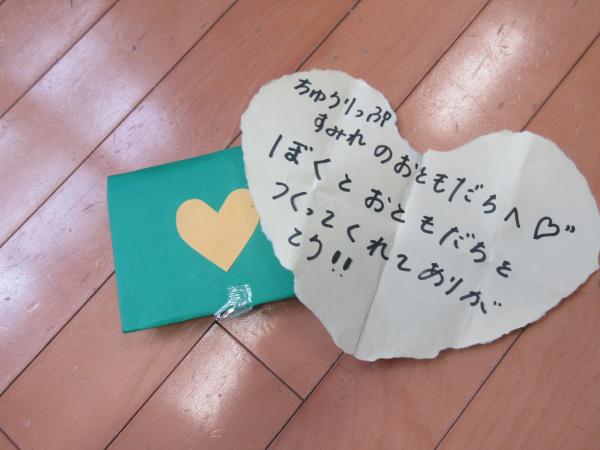 ちゅうりっぷ
すみれ のおともだちへ♡"
ぼくとおともだちを
つくってくれてありが
とう!!